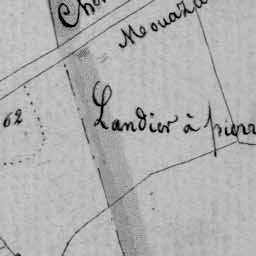 Cho
Mouaza
62
Landier à pierr